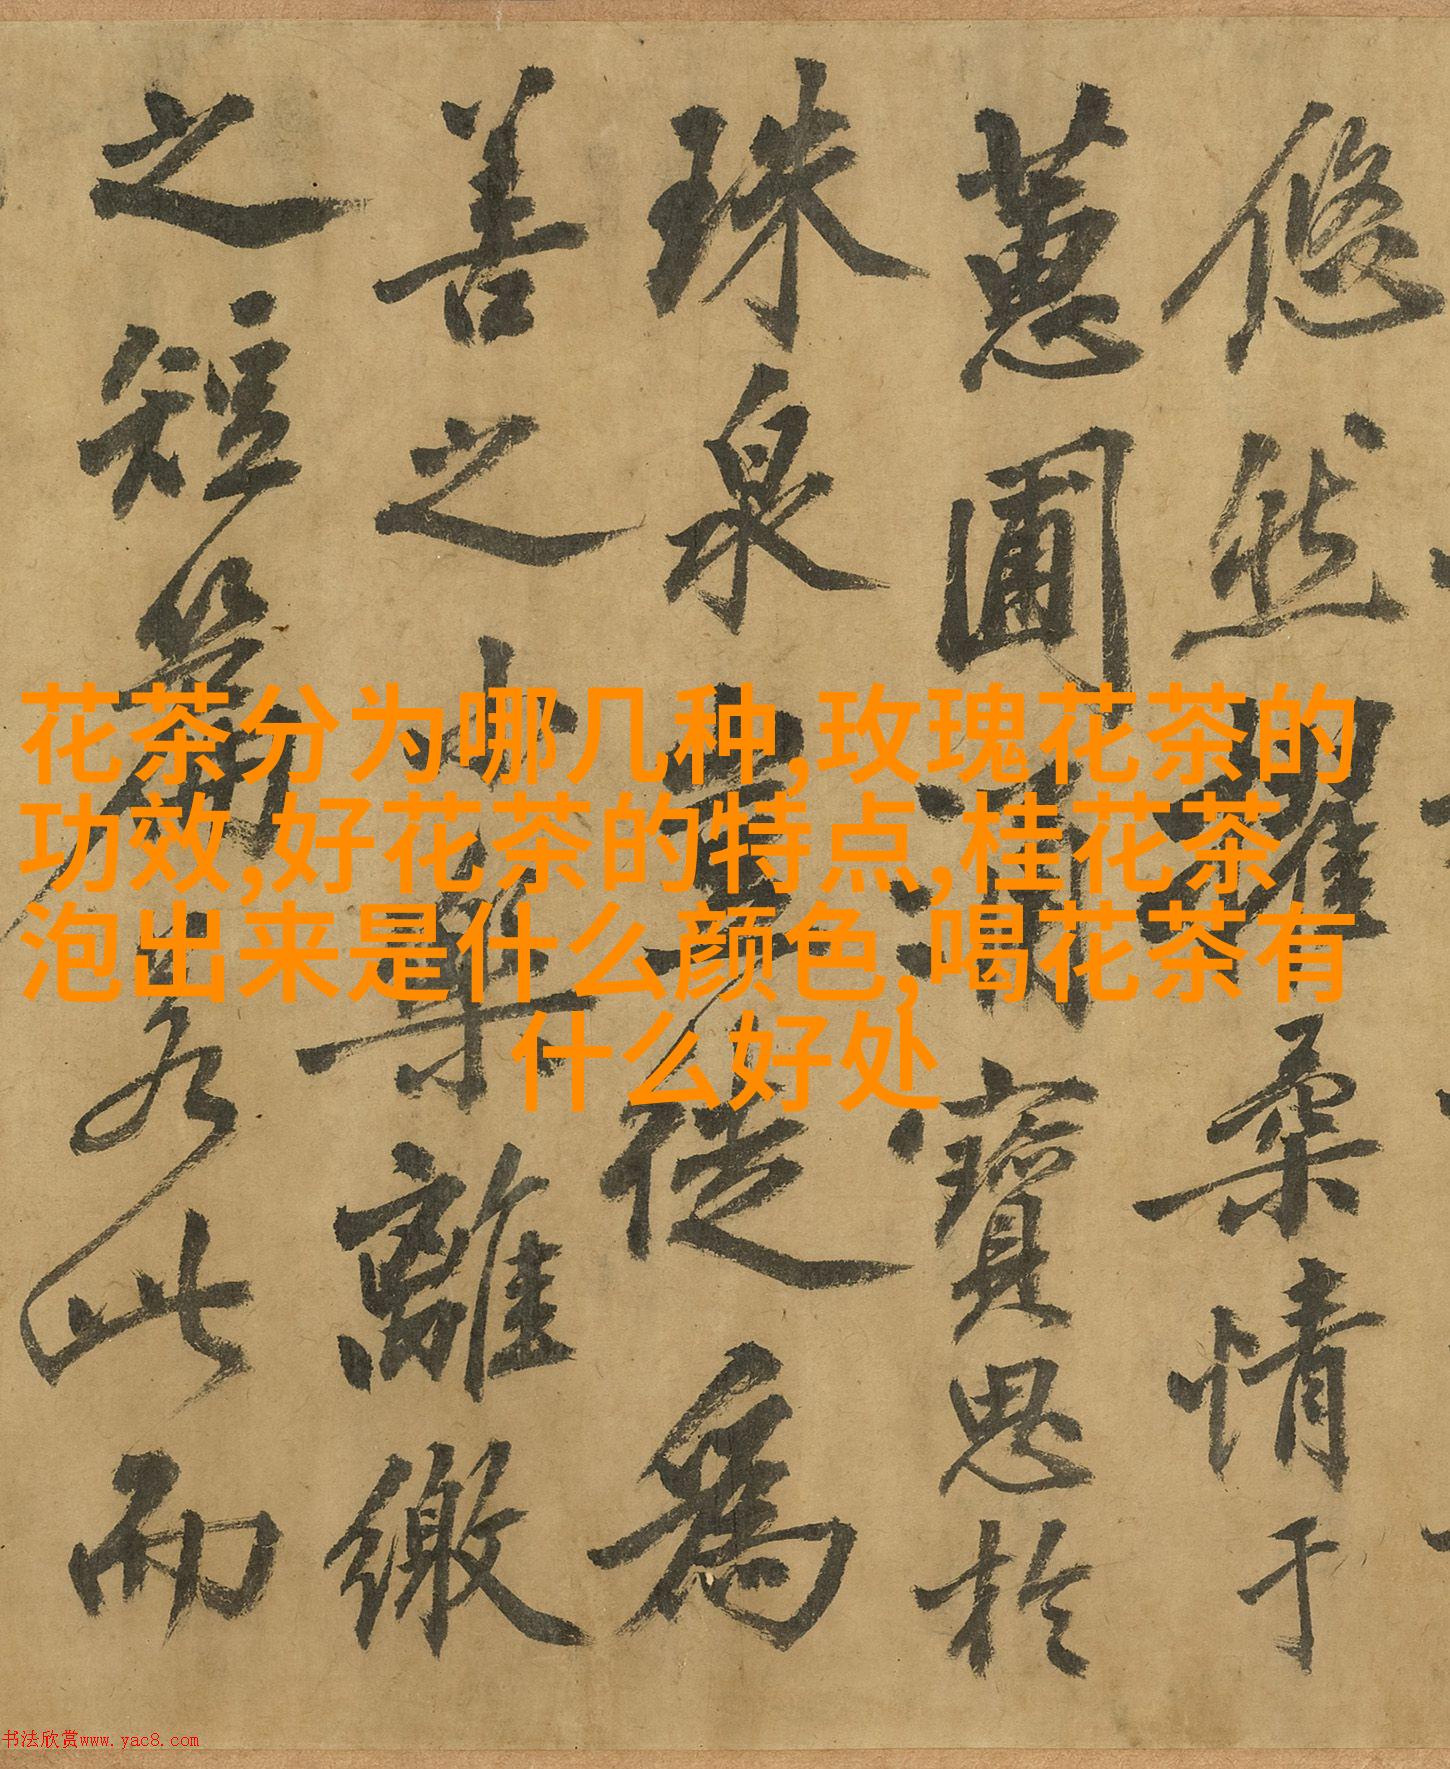 悠然擢柔情于
蕙圃寶思於
珠泉豈徒為
善之小樂離繳
之短篇若此而
花茶分为哪几种,玫瑰花茶的
功效,好花茶的特点,桂花茶
泡出来是什么颜色,喝花茶有
什么好处
书法欣赏www.yac8.com